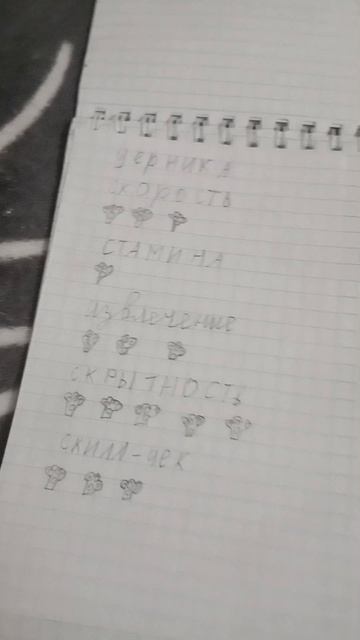 черника
скорость
СТАМИНА
извлечение
СКРЫТНОСТЬ
скилл-чек